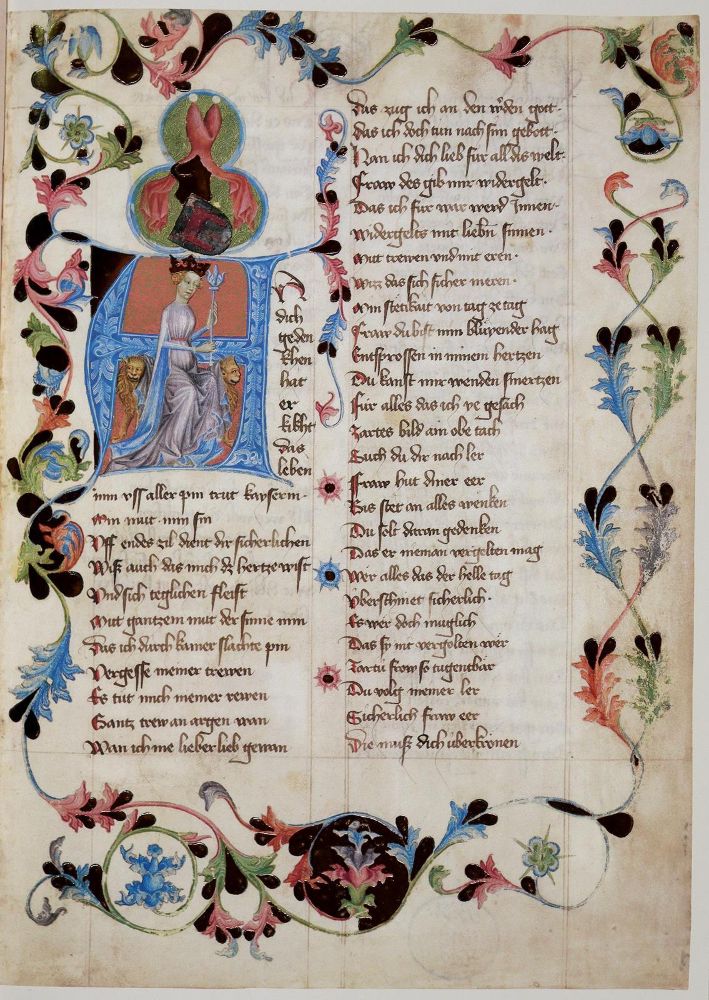 N
dich
geden
khen
hat
er
kikht
das
leben
min vss aller pin trut kayserin·
Min mut min sin
Vff endes zil dient dir sicherlichen
Wiß auch das mich dz hertze wist
Vnd sich teglichen fleist
Mit gantzem mut der sinne min
Das ich durch kainer slachte pin
Vergesse meiner trewen
Es tut mich niemer rewen
Gantz trew an argen wan
Wan ich nie lieber lieb gewan
das zug ich an den
gott·
das ich doch tun nach sim gebott·
Han ich dich lieb für all dis welt·
Fraw des gib mir widergelt·
Das ich für war werd Innen·
Widergelts mit liebn sinnen·
Mit trewen vnd mit eren·
Wiz das sich sicher meren·
Min stetikait von tag ze tag
Fraw du bist min blüyender hag
Entsprossen in minem hertzen
Du kanst mir wenden smertzen
Für alles das ich ye gesach
Zartes bild ain obe tach
Such du dir nach ler
Fraw hut diner eer
Bis stet an alles wenken
Du solt daran gedenken
Das er nieman vergelten mag
Wer alles das der helle tag
Vberschinet sicherlich·
Es wer doch muglich
Das sy mir vergolten wer
Zartu frow so tugentbär
Du volg meiner ler
Sicherlich fraw eer
Die muß dich überkrönen